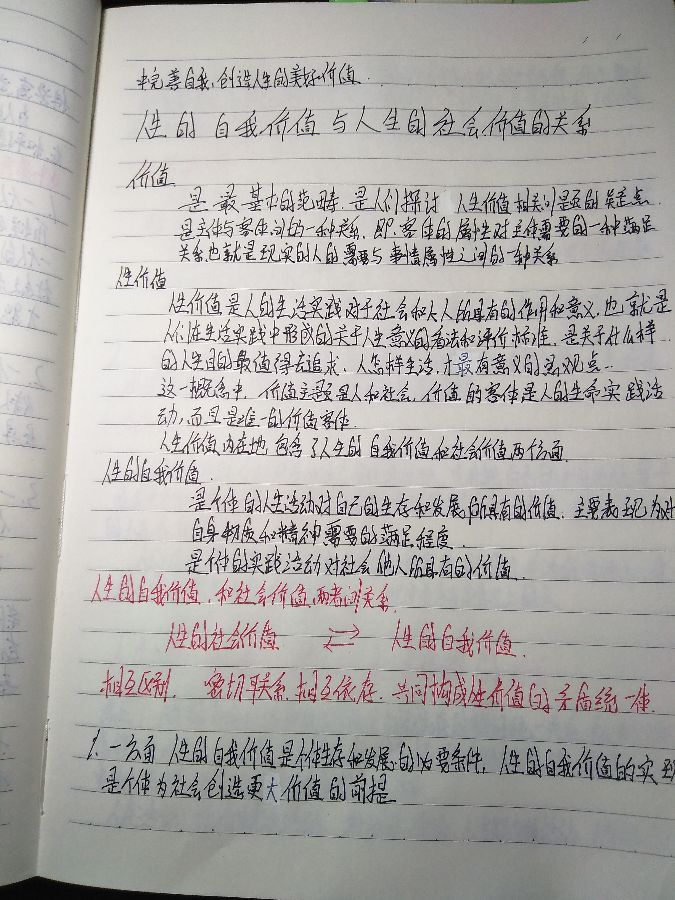 中完善自我,创造人生的美好价值.
人生的自我价值与人生的社会价值的关系
价值
是最基本的范畴.是人们探讨 人生价值相关问题的起点.
是主体与客体间的一种关系.即:客体的属性对主体需要的一种满足
关系.也就是现实的人的需要与事情属性之间的一种关系
人生价值
人生价值是人的生活实践对于社会和个人所具有的作用和意义.也就是
人们在生活实践中形成的关于人生意义的看法和评价标准.是关于什么样
的人生目的最值得去追求.人怎样生活,才最有意义的观点..
这一概念中,价值主题是人和社会,价值的客体是人的生命实践活
动,而且是唯一的价值客体.
人生价值内在地包含了人生的自我价值和社会价值两个方面.
人生的自我价值.
是个体的人生活动对自己的生存和发展所具有的价值.主要表现为对
自身物质和精神需要的满足程度.
是个体的实践活动对社会他人所具有的价值.
人生的自我价值.和社会价值,两者间关系.
人生的社会价值 ⇄ 人生的自我价值.
相互区别. 密切联系.相互依存.共同构成人生价值的矛盾统一体.
1.一方面 人生的自我价值是个体生存和发展的必要条件,人生的自我价值的实现
是个体为社会创造更大价值的前提